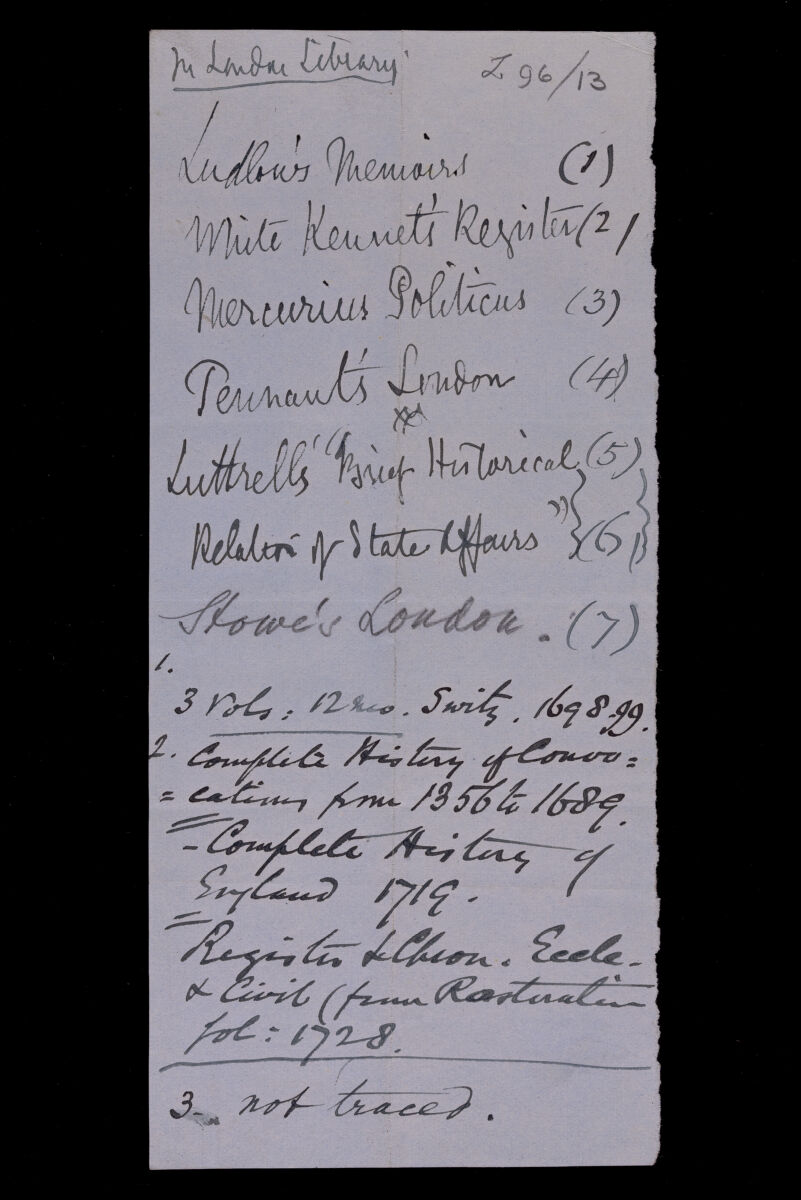 In London Library
Z 96/13
Ludlow's Memoirs (1)
White Kennet's Register (2)
Mercurius Politicus (3)
Pennant's London (4)
Luttrell's "Brief Historical (5)
Relation of State Affairs" (6)
Stowe's London. (7)
1.
3 Vols: 12mo. Switz. 1698.99.
2. Complete History of Convo=
=cations from 1356 to 1689.
- Complete History of
England 1719.
Register & Chron. Eccle-
& Civil (from Restoration
fol: 1728.
3- not traced.